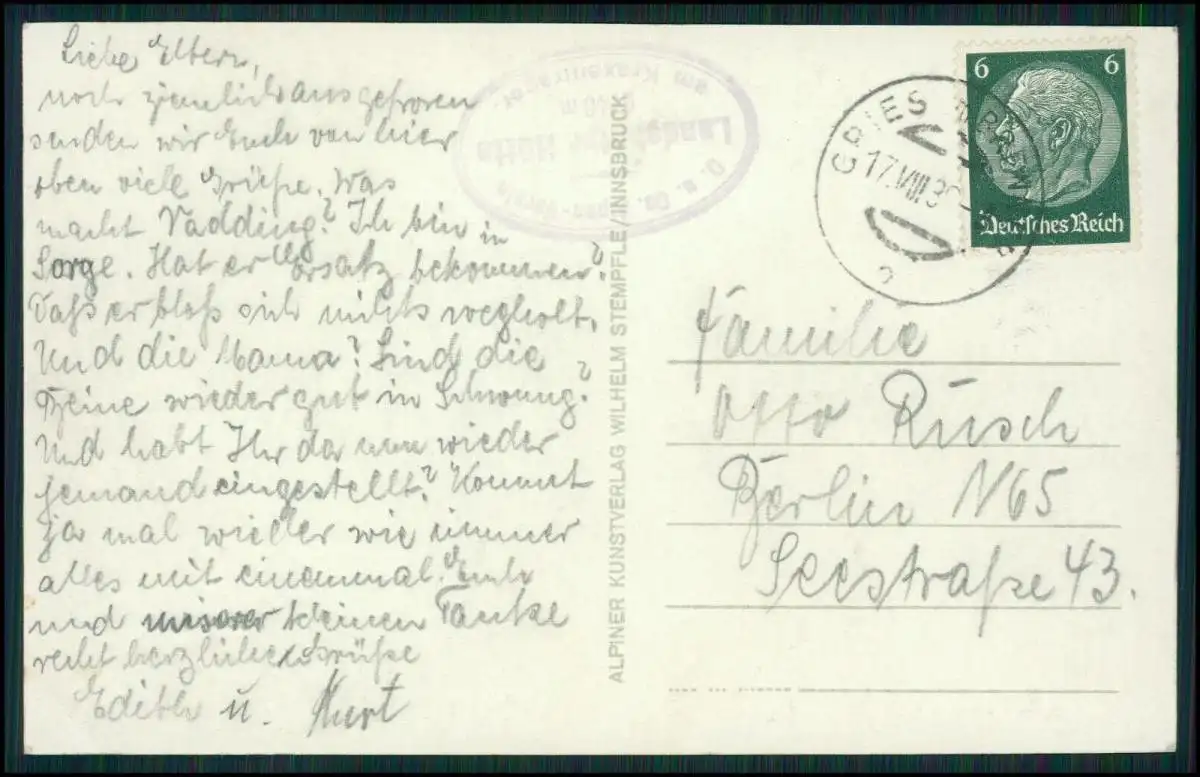 Liebe Eltern,
noch ziemlich ausgefroren
senden wir Euch von hier
oben viele Grüße. Was
macht Vadding? Ich bin in
Sorge. Hat er Ersatz bekommen?
Daß er bloß sich nichts wegholt.
Und die Mama? Sind die
Beine wieder gut in Schwung?
Und habt Ihr da nun wieder
jemand eingestellt? Kommt
ja mal wieder wie immer
alles mit einemmal. Euch
und unserer kleinen Tante
recht herzliche Grüße
Edith u. Kurt
ALPINER KUNSTVERLAG WILHELM STEMPFLE/INNSBRUCK
D. u. Oe. Alpen-Verein
Landshuter Hütte
am Kraxentrager
GRIES BRENNER
17.VIII.39
6 6
Deutsches Reich
Familie
Otto Rusch
Berlin N65
Seestraße 43.